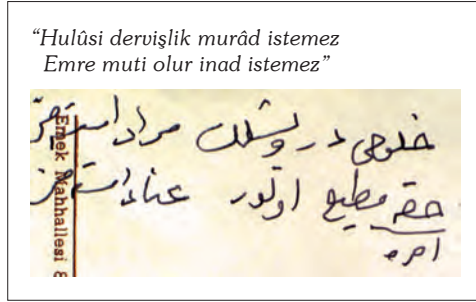 “Hulûsi dervişlik murâd istemez
Emre muti olur inad istemez”
خلوصی درویشلك مراد استمز
حقه مطیع اولور عناد استمز
امره
Emek Mahhallesi 8